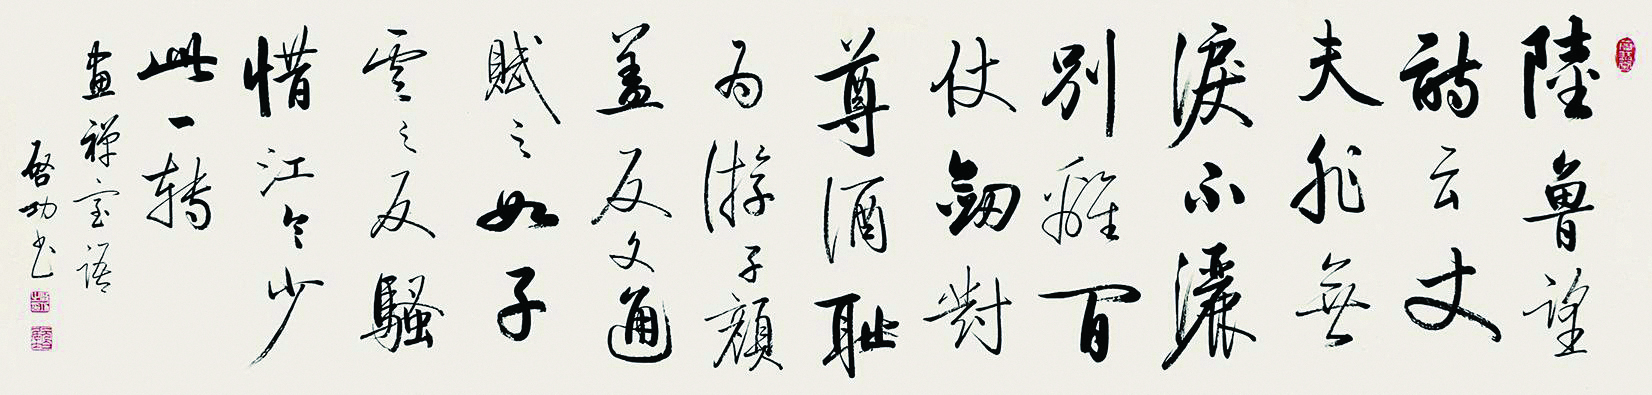 陸魯望
詩云丈
夫非無
淚不灑
別離間
仗劍對
尊酒耻
為游子顏
蓋反文通
賦之如子
雲之反騷
惜江令少
此一轉
畫禪室語
啓功書